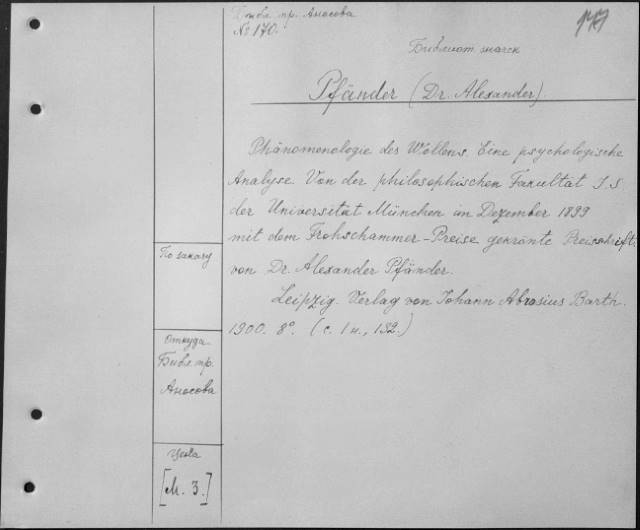 Библ. пр. Аносова
№ 170.
Библиот. знаск
Pfänder (Dr. Alexander)
Phänomenologie des Wollens. Eine psychologische
Analyse. Von der philosophischen Fakultät I. S.
der Universität München im Dezember 1899
mit dem Frohschammer-Preise gekrönte Preisschrift.
von Dr. Alexander Pfänder.
Leipzig. Verlag von Johann Abrosius Barth.
1900. 8°. (с. 1 н., 132.)
По заказу
Откуда
Библ. пр.
Аносова
Цена
[М. 3.]